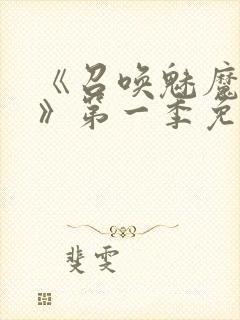 《召唤魅魔
》第一季免
斐雯